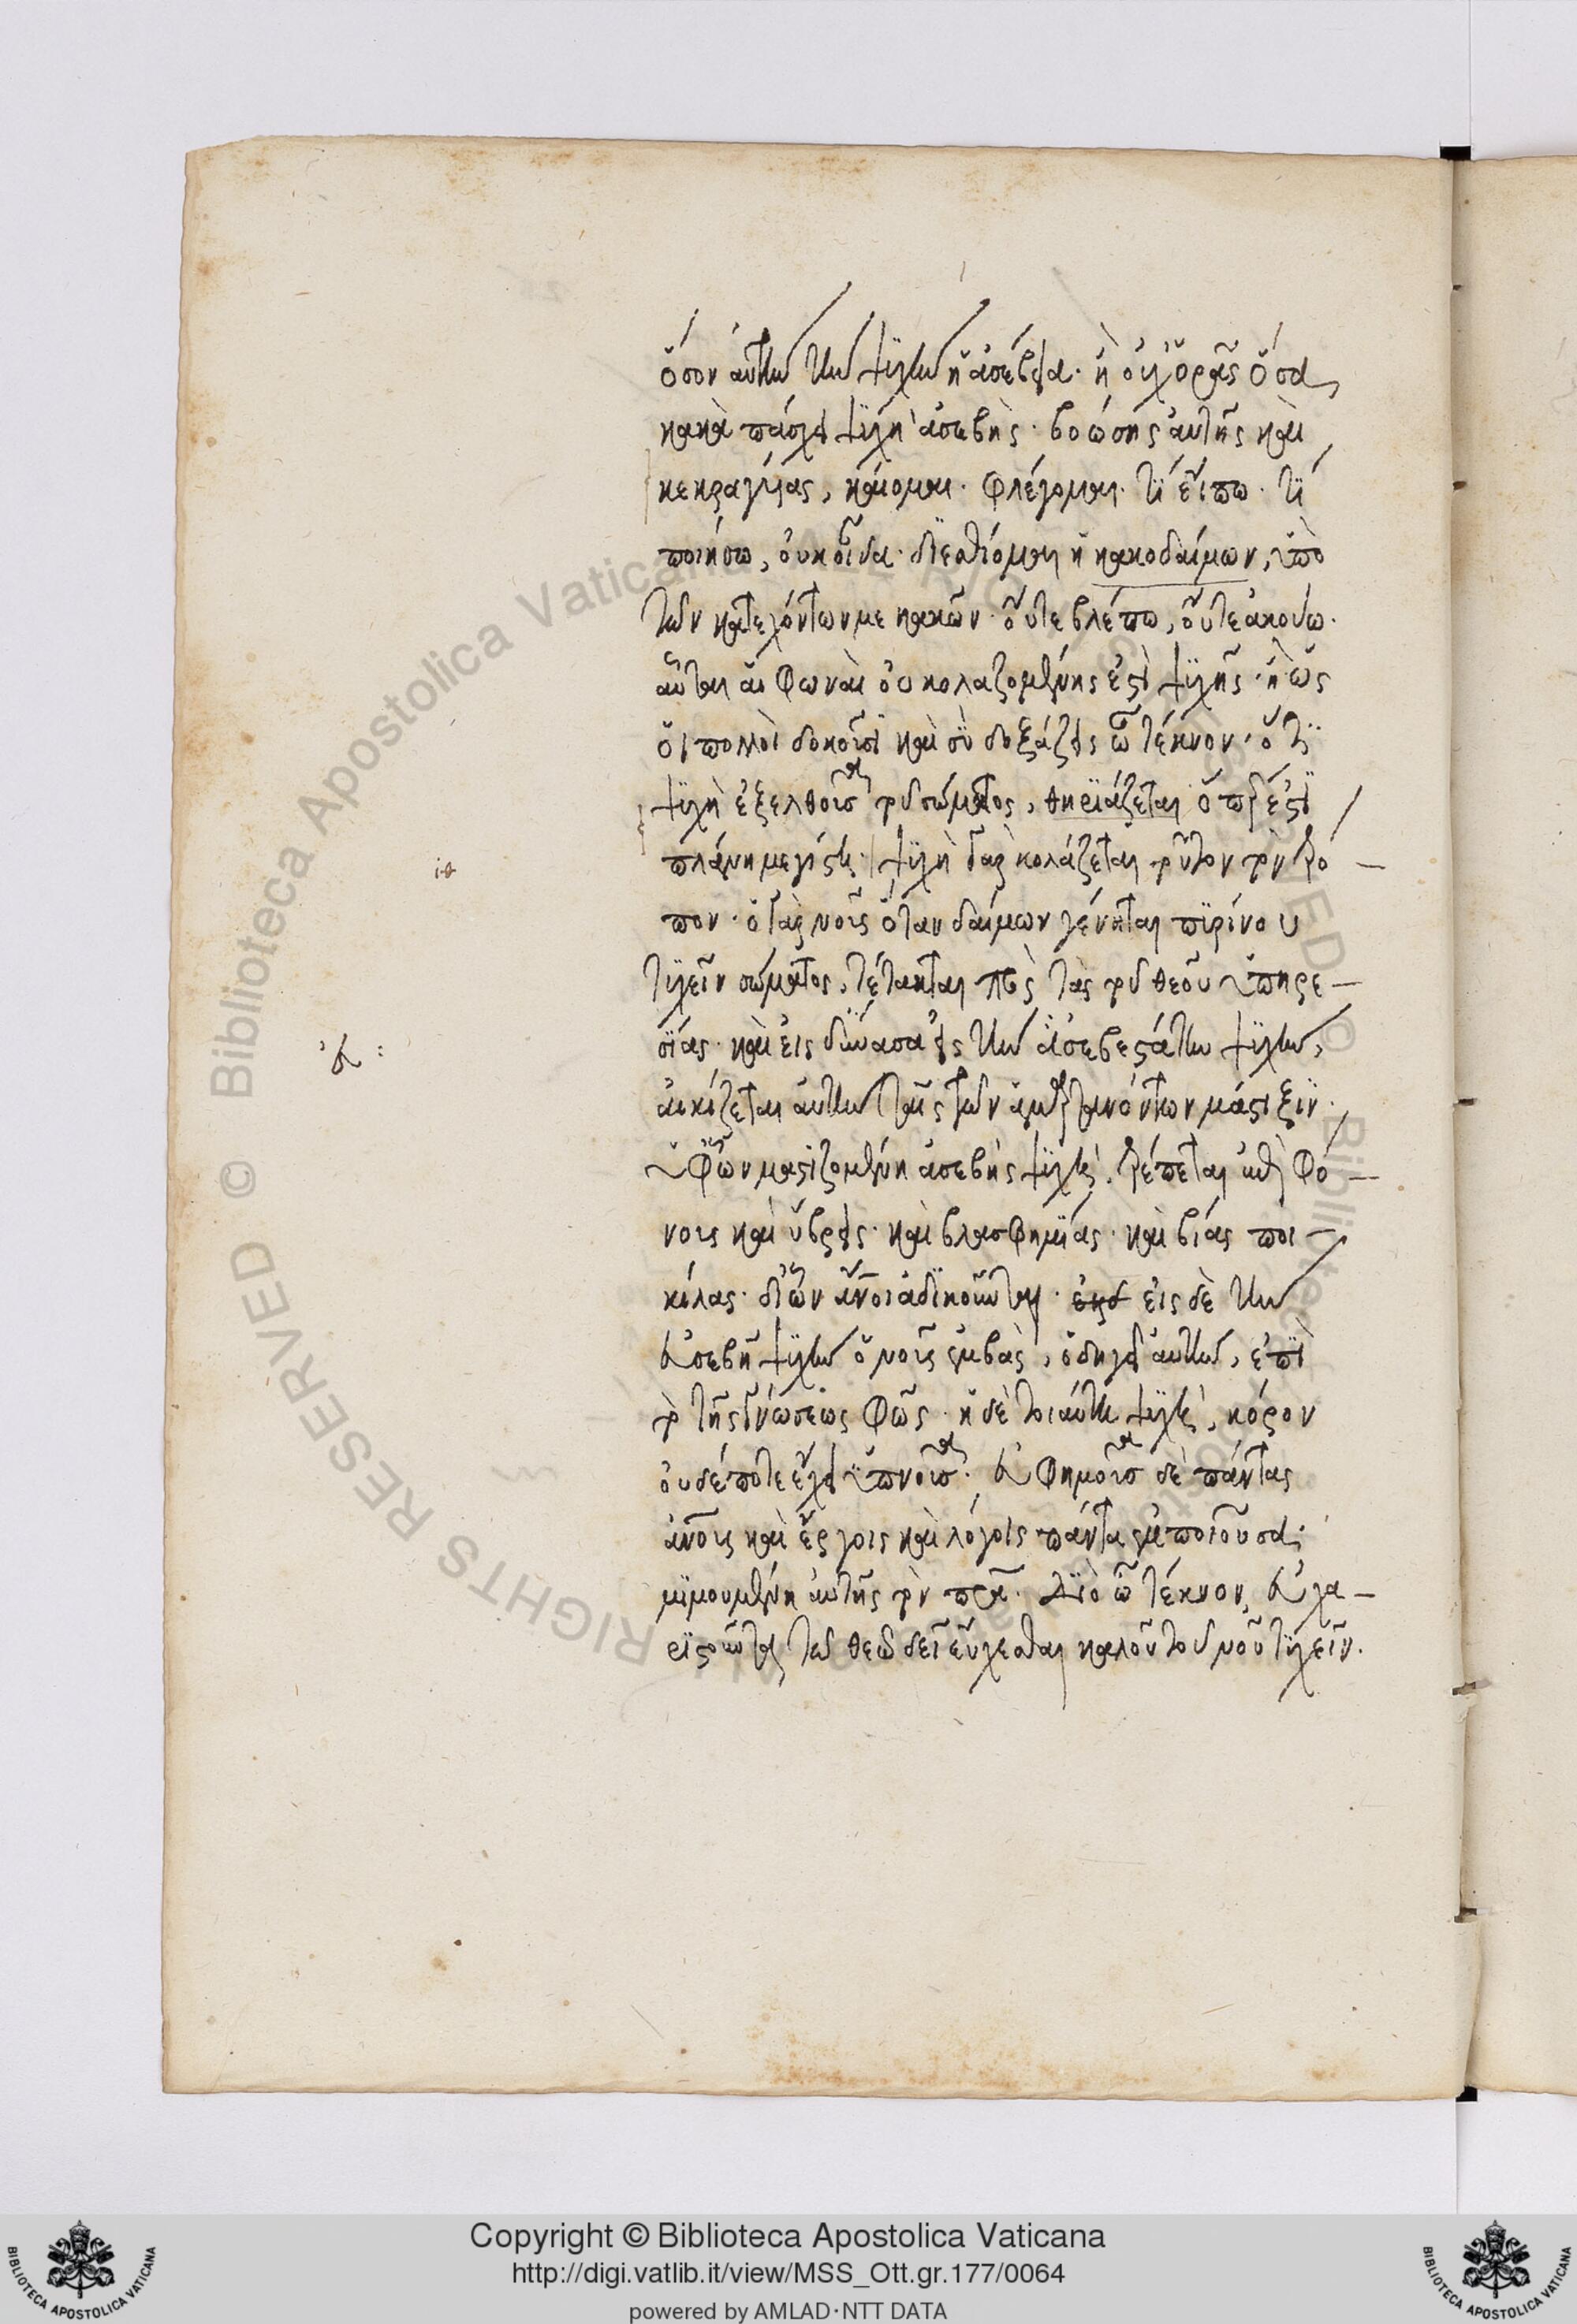 ὅσον αὐτὴν τὴν ψυχὴν ἡ ἀσέβεια· ἢ οὐχ ὁρᾷς ὅσα
κακὰ πάσχει ψυχὴ ἀσεβὴς· βοώσης αὐτῆς καὶ
κεκραγυίας, καίομαι· φλέγομαι· τί εἴπω· τί
ποιήσω, οὐκ οἶδα· διεσθίομαι ἡ κακοδαίμων, ὑπὸ
τῶν κατεχόντων με κακῶν· οὔτε βλέπω, οὔτε ἀκούω·
αὗται αἱ φωναὶ οὐ κολαζομένης ἐστὶ ψυχῆς· ἢ ὡς
οἱ πολλοὶ δοκοῦσι καὶ σὺ δοξάζεις ὦ τέκνον· ὅτι
ψυχὴ ἐξελθοῦσα τοῦ σώματος, θηριάζεται ὅπερ ἐστὶ
πλάνη μεγίστη· ψυχὴ γὰρ κολάζεται τοῦτον τὸν τρό
ιθ
πον· ὁ γὰρ νοῦς ὅταν δαίμων γένηται πυρίνου
τυχεῖν σώματος, τέτακται πρὸς τὰς τοῦ θεοῦ ὑπηρε-
σίας· καὶ εἰσδύνασα εἰς τὴν ἀσεβεστάτην ψυχὴν,
ἀ:
αἰκίζεται αὐτὴν ταῖς τῶν ἁμαρτανόντων μάστιξιν·
ὑφ' ὧν μαστιζομένη ἀσεβὴς ψυχὴ, τρέπεται ἐπὶ φό-
νους καὶ ὕβρεις· καὶ βλασφημίας· καὶ βίας ποι-
κίλας· δι' ὧν ἄνοι ἀδικοῦνται· εἰς δὲ τὴν
εὐσεβῆ ψυχὴν ὁ νοῦς ἐμβὰς, ὁδηγεῖ αὐτὴν, ἐπὶ
τὸ τῆς γνώσεως φῶς· ἡ δὲ τοιαύτη ψυχὴ, κόρον
οὐδέποτε ἔχει ὑπνοῦσα· εὐφημοῦσα δὲ πάντας
ἀνους καὶ ἔργοις καὶ λόγοις πάντα εὖ ποιοῦσα·
μιμουμένη αὐτῆς τὸν πρα· διὸ ὦ τέκνον, εὐχα-
ριστοῦντα τῷ θεῷ δεῖ εὔχεσθαι καλοῦ τοῦ νοῦ τυχεῖν.
Copyright © Biblioteca Apostolica Vaticana
http://digi.vatlib.it/view/MSS_Ott.gr.177/0064
powered by AMLAD·NTT DATA
BIBLIOTECA APOSTOLICA VATICANA
BIBLIOTECA APOSTOLICA VATICANA